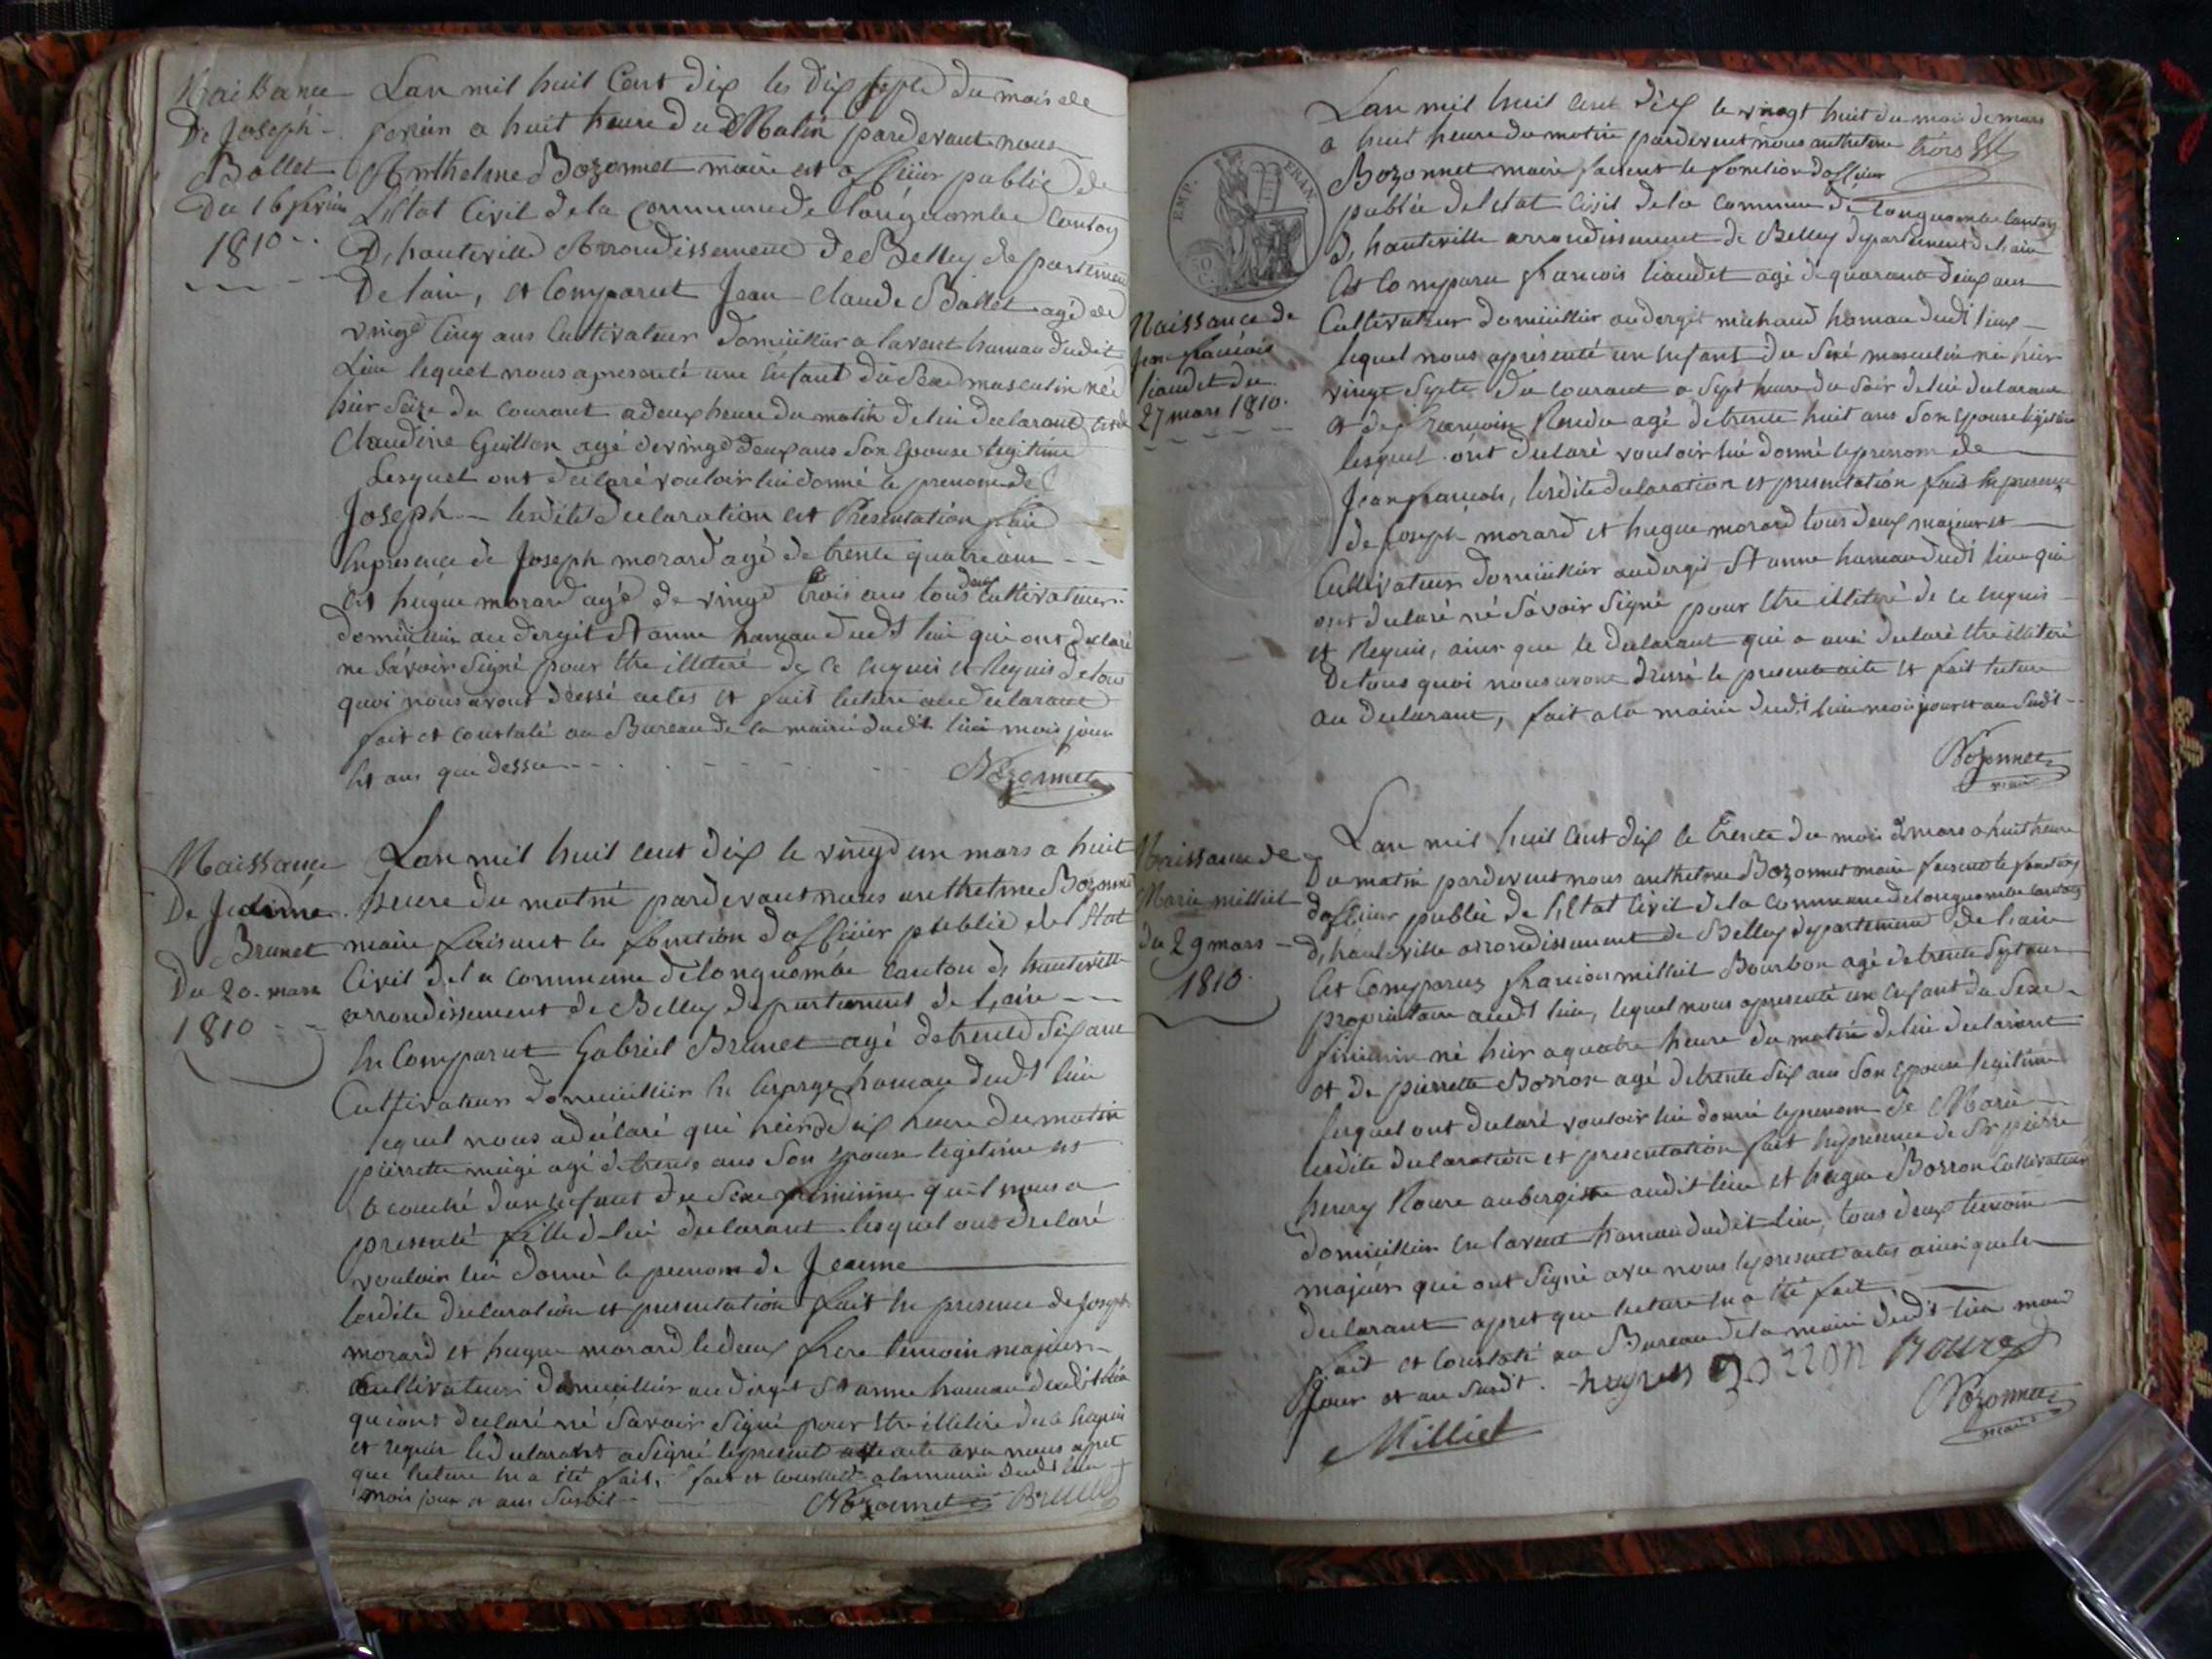 Naissance
De Joseph -
Ballet
Du 16 fevrier
1810
Lan mil huit Cent dix les dix sept du mois de
fevrier a huit heure du Matin pardevant nous
Anthelme Bozonnet maire et officier public de
L'Etat Civil dela Commune de longecombe Canton
D'hauteville Arrondissement de Belley departement
De lain, est Comparut Jean Claude Ballet agé de
vingt cinq ans Cultivateur domicillier a lavent hamau dudit
Lieu lequel nous apresenté une enfant du Sexe masculin né
hier Seize du Courant a deux heure du matin de lui declarant et de
Claudine Guillon agé de vingt deux ans Son Epouse legitime
Lesquel ont déclaré vouloir lui donné le prenom de
Joseph - lesdite declaration et Presentation fait
en presence de Joseph morard agé de trente quatre ans - -
Et hugue morard agé de vingt trois ans tous deux Cultivateurs
domicillier au dergit St anne hamau dudt lieu qui ont declaré
ne Savoir Signé pour Etre illeteré de ce enquis et Requis de tous
quoi nous avont dressé actes et fait lecture au declarant
fait et Constaté au Bureau de la mairie dudt lieu mois jour
et ans que dessu - - -
Bozonnet
Naissance
De Jeanne
Brunet
Du 20. mars
1810 - -
Lan mil huit cent dix le vingt un mars a huit
heure du matin pardevant nous anthelme Bozonnet
maire faisant les fonction dofficier publié de l'Etat
Civil dela commune de longecombe canton d, hauteville
arrondissement de Belley departement de l,ain - -
est Comparut Gabriel Brunet agé de trente Six ans
Cultivateur domicillier en lesarge hamau dudt lieu
lequel nous adéclaré que hier a dix heure du matin
pierrette agé de trente ans Son Epouse legitime est
acouché dun enfant du Sexe feminine quil nous a
presenté fille de lui declarant lesquel ont declaré
vouloir lui donné le prenom de Jeanne
lesdite declaration et presentation fait en presence de Joseph
morard et hugue morard le deux frere temoin majeur -
Cultivateur domicillier au dirgit St anne hamau dudit lieu
qui ont declaré né Savoir Signé pour Etre illetire de ce enquis
et requis le declarant a Signé le present acte avec nous apret
que lecture en a été fait, fait et Constaté a la mairie dudt lieu
mois jour et ans Susdit
Bozonnet Brunet
trois
EMP. FRAN.
Naissance de
Jean francois
liaudet du
27 mars 1810.
Lan mil huit cent dix le vingt huit du mois de mars
a huit heure du matin pardevent nous anthelme
Bozonnet maire faisent le fonction dofficier
publié del'etat Civil dela commune de longecombe Canton
d, hauteville arrondissement de Belley departement de l,ain
Est Comparu francois liaudet agé de quarante deux ans
Cultivateur domicillier au dergit michaud hamau dudt lieu -
lequel nous apresenté un enfant du Sexe masculin né hier
vingt Septe du Courant a Sept heure du Soir de lui declarant
et de francoise agé de trente huit ans Son Epouse legitime
lesquel ont declaré vouloir lui donné le prenom de
Jean francois, lesdite declaration et presentation fait en presence
de Joseph morard et hugue morard tous deux majeur et
Cultivateur domicillier au dergit St anne hamau dudt lieu qui
ont declaré né Savoir Signé pour Etre illeteré de ce enquis
et Requis, ainsi que le declarant qui a ausi declaré Etre illiteré
De tous quoi nous avons dressé le present acte et fait lecture
au declarant, fait a la mairie dudt lieu mois jour et an Susdt -
Bozonnet
maire
Naissance de
Marie milliet
du 29 mars -
1810.
Lan mil huit cent dix le trente du mois de mars a huit heure
Du matin pardevent nous anthelme Bozonnet maire faisent le fonction
dofficier publié de l'Etat Civil dela commune de longecombe canton
d, hauteville arrondissement de Belley departement de l'ain
Est Comparus francois milliet Bourbon agé de trente Sept ans
propriétaire audt lieu, lequel nous apresenté un enfant du Sexe -
feminin né hier a quatre heure du matin de lui declarant
et de pierrette Borron agé de trente Six ans Son Epouse legitime
lesquel ont declaré vouloir lui donné le prenom de Marie
lesdite declaration et presentation fait en presence de Sr pierre
henry Roure aubergiste audit lieu et hugue Borron Cultivateur
domicillier en lavent hamau dudit lieu, tous deux temoin
majeur qui ont Signé avec nous le present actes ainsi que le
declarant apret que lecture en a été fait
fait et Constaté au Bureau dela mairie dudt lieu mois
Jour et an Susdit. hugues Borron Roure
Milliet
Bozonnet
maire